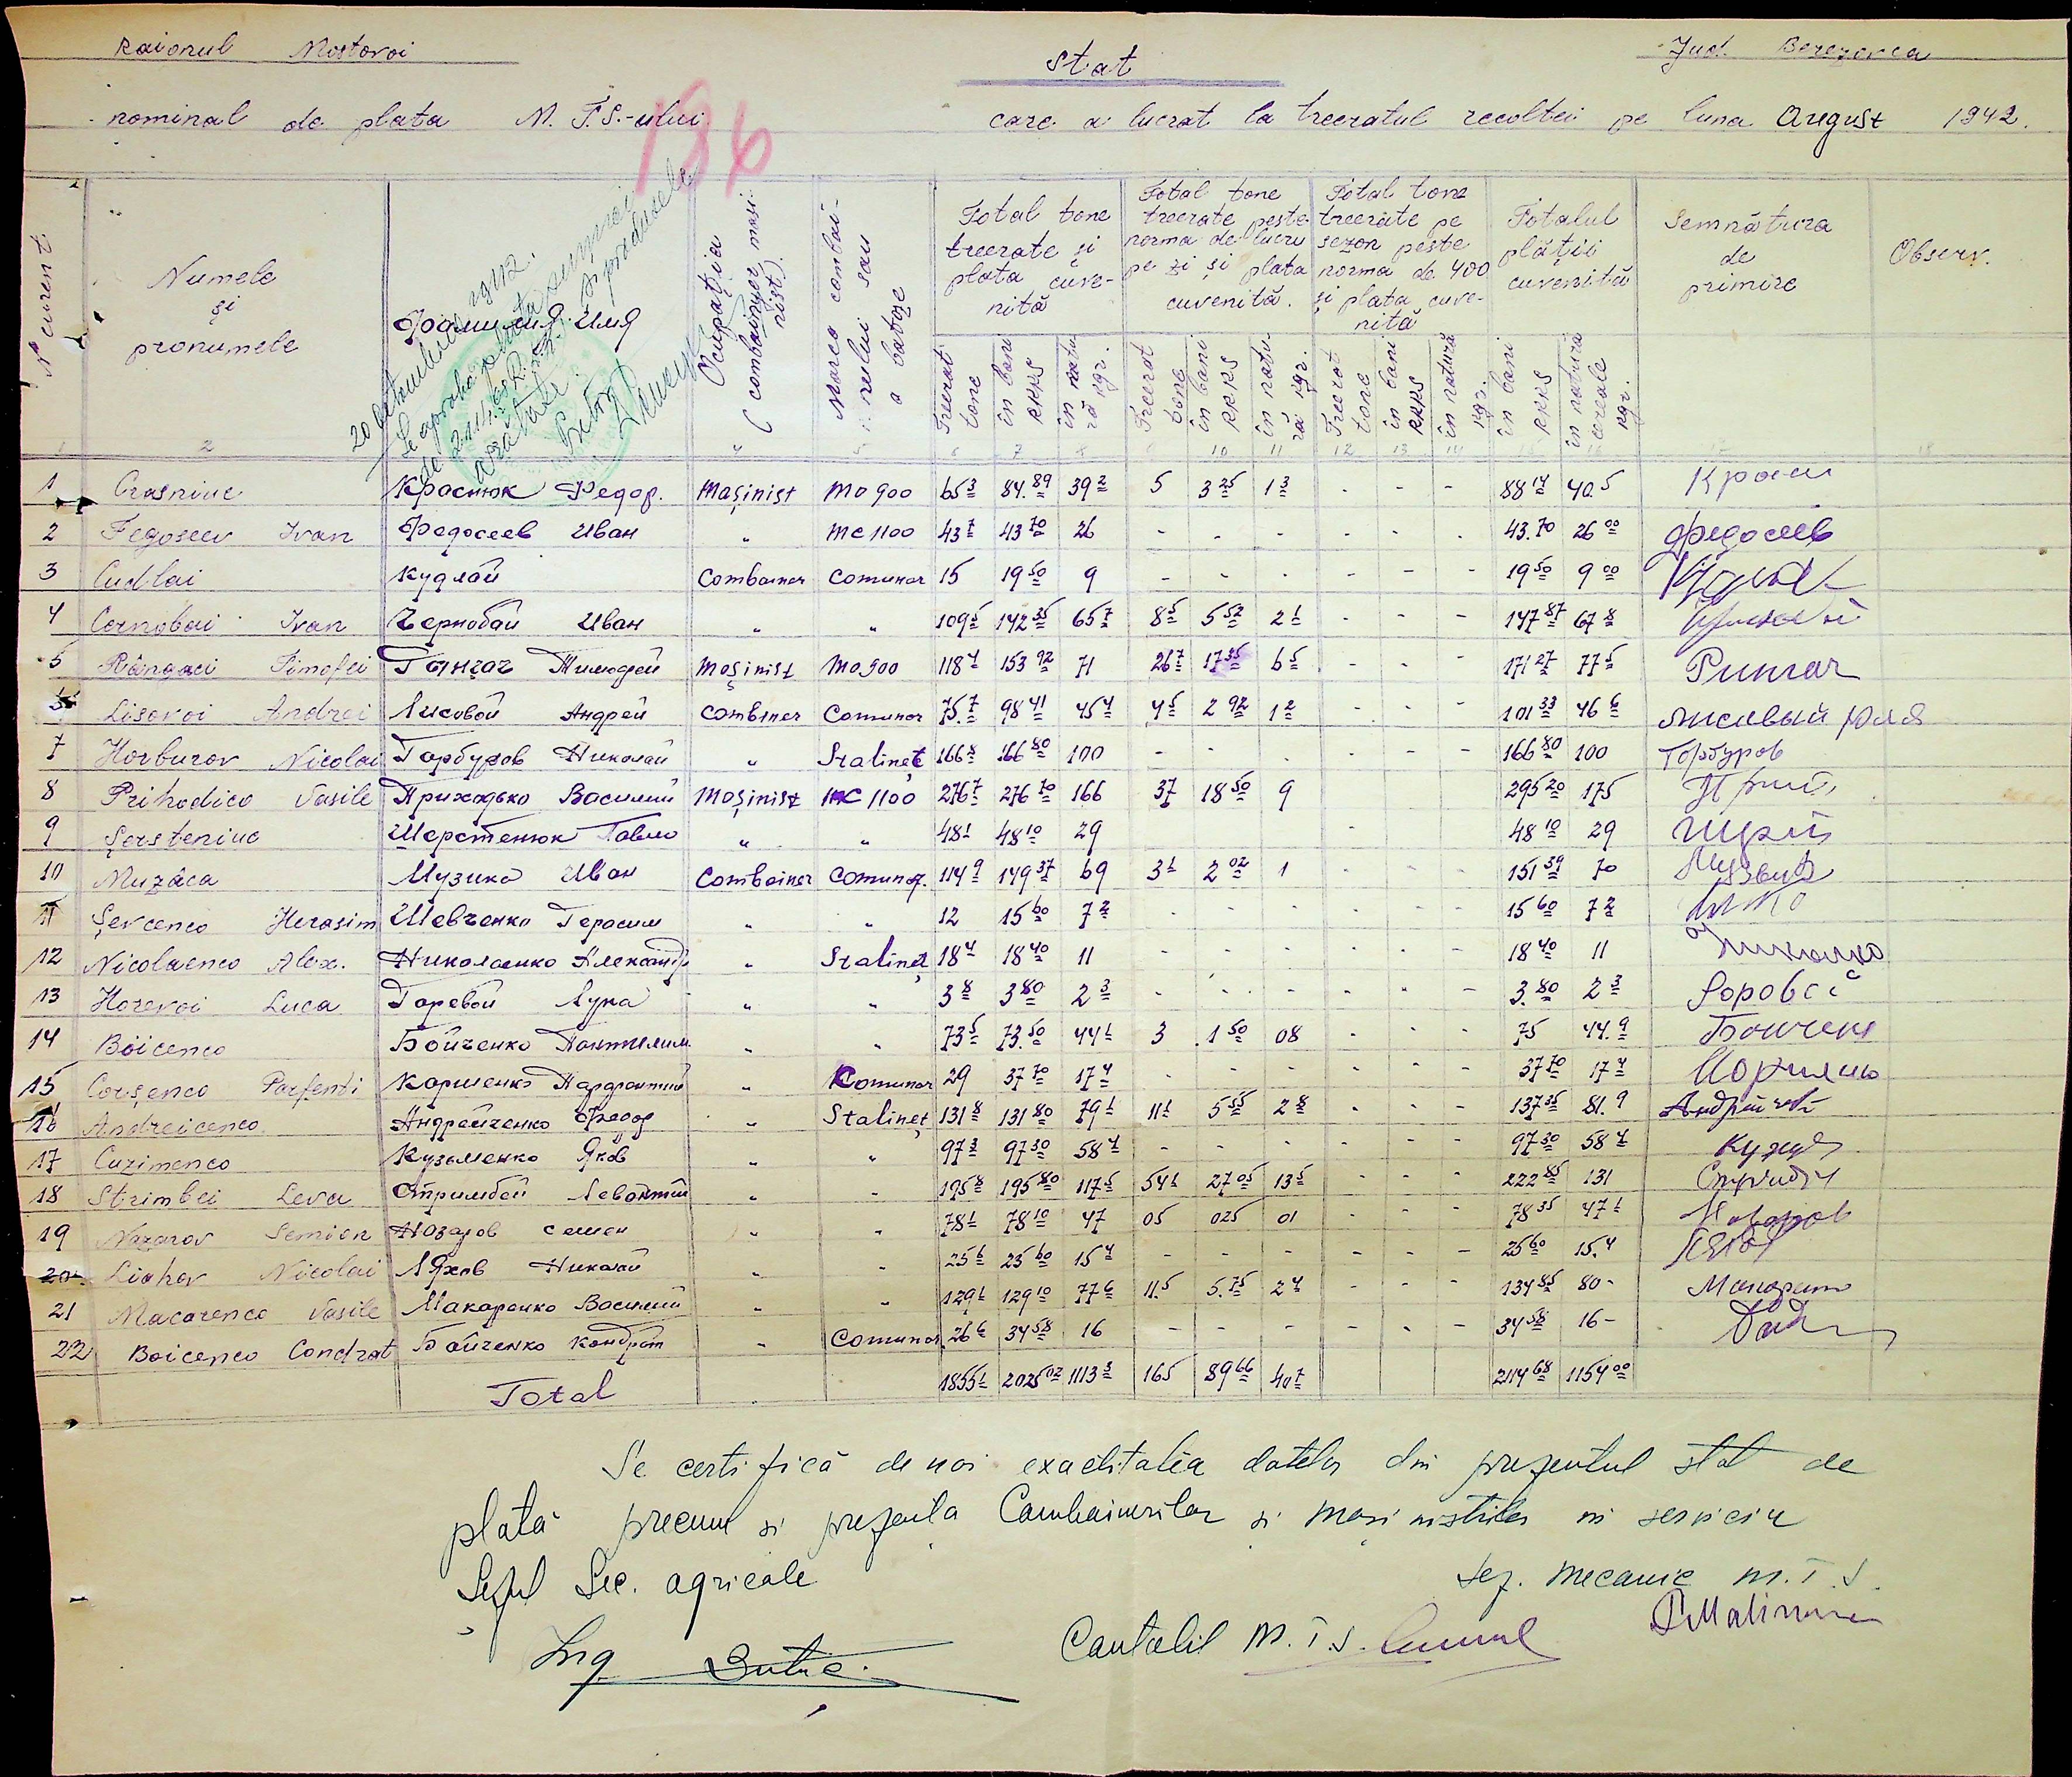 Raionul Mostovoi
Stat
Jud. Berezovca
nominal de plata M.T.S.-ului care a lucrat la treeratul recoltei pe luna August 1942.
186
20 Septembrie 1942.
Se aproba plata sumei
de 2114,68 R.K.K.S. si produsele
aratate.
Nº curent.
Numele
și
pronumele
Фамилия. Имя
Ocupația
(combainer mași-
nist)
Marca combai-
nului sau
a batoze
Total tone
treerate și
plata cuve-
nită
Total tone
treerate peste
norma de lucru
pe zi și plata
cuvenită.
Total tone
treerate pe
sezon peste
norma de 400
și plata cuve-
nită
Totalul
plății
cuvenită
Semnătura
de
primire
Observ.
Treerat tone în bani RKKS în natu-ră kgr. Treerat tone în bani RKKS în natu-ră kgr. Treerat tone în bani RKKS în natură kgr. în bani RKKS în natură cereale kgr.
1 2 4 5 6 7 8 10 11 12 13 14 15 16 17 18
1 Crasniuc Краснюк Федор. Mașinist Mo 900 65 3 84.89 39 2 5 3 25 1 3 - - - 88 14 40.5 Красн
2 Fegoseev Ivan Федосеев Иван " MC 1100 43 7 43 70 26 - - - - - - 43.70 26 00 Федосеев
3 Cudlai Кудлай Combainer Comunar 15 19 50 9 - - - - - - 19 50 9 00
4 Cernobai Ivan Чернобай Иван " " 109 5 142 35 65 7 8 5 5 52 2 1 - - - 147 87 67 8
5 Rângaci Timofei Рынгач Тимофей Mașinist Mo 900 118 4 153 92 71 26 7 17 35 6 5 - - - 171 27 77 5
Lisovoi Andrei Лисовой Андрей Combiner Comunar 75.7 98 41 45 4 4 5 2 92 1 2 - - - 101 33 46 6
7 Horburov Nicolai Горбуров Николай " Stalineț 166 8 166 80 100 - - - - - 166 80 100 Горбуров
8 Prihodico Vasile Приходько Василий Mașinist MC 1100 276 7 276 70 166 37 18 50 9 295 20 175
9 Șersteniuc Шерстенюк Павло " " 48 1 48 10 29 - 48 10 29
10 Muzâca Музика Иван Combainer Comunar. 114 9 149 37 69 3 1 2 02 1 - - - 151 39 70
11 Șevcenco Herasim Шевченко Герасим " " 12 15 60 7 2 - - - - - - 15 60 7 2
12 Nicolaenco Alex. Николаенко Александр " Stalineț 18 4 18 40 11 - - - - - - 18 40 11
13 Horevoi Luca Горевой Лука " " 3 8 3 80 2 3 - - - - - - 3.80 2 3
14 Boicenco Бойченко Пантилим. " " 73 5 73.50 44 1 3 1 50 08 - - - 75 44.9
15 Corșenco Parfenti Коршенко Парфентий " Comunar 29 37 70 17 4 - - - - - - 37 70 17 4
16 Andreicenco Андрейченко Федор " Stalineț 131 8 131 80 79 1 11 1 5 55 2 8 - - - 137 35 81.9
17 Cuzimenco Кузьменко Яков " " 97 3 97 30 58 4 - - - - - - 97 30 58 4
18 Strimbei Leva Стримбей Левонтий " " 195 8 195 80 117 5 54 1 27 05 13 5 - - - 222 85 131
19 Nazarov Semion Назаров Семен " " 78 1 78 10 47 05 025 01 - - - 78 35 47 1 Назаров
20 Liahov Nicolai Ляхов Николай " " 25 6 25 60 15 4 - - - - - - 25 60 15.4
21 Macarenco Vasile Макаренко Василий " " 129 1 129 10 77 6 11.5 5.75 2 4 - - - 134 85 80-
22 Boicenco Condrat Бойченко Кондрат " Comunar 26 6 34 58 16 - - - - - - 34 58 16-
Total 1855 1 2025 02 1113 3 165 89 66 40 7 2114 68 1154 00
Se certifică de noi exactitatea datelor din prezentul stat de
plată precum si prezența Combainerilor si mașiniștilor in serviciu
Șeful Sec. agricole
Șef. mecanic M.T.S.
Contabil M.T.S.
Ing.